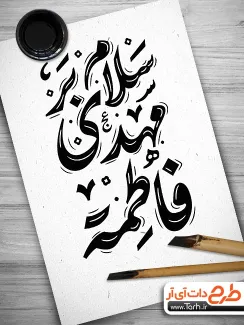 سلام بر
مهدئ
فاطمة
طرح دات آی آر
www.Tarh.ir